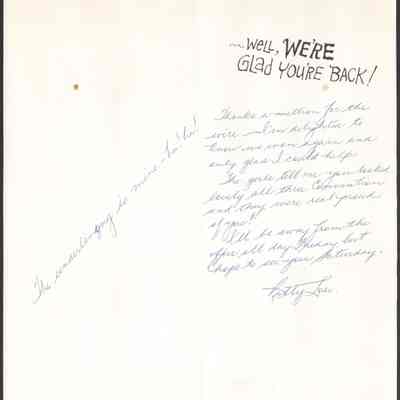 ... WELL, WE'RE
GLAD YOU'RE BACK!
Thanks a million for the
wire - I'm delighted to
know we won again and
only glad I could help
The girls tell me you looked
lovely all three Convention
and they were real proud
of you!
I'll be away from the
office all day Friday but
hope to see you Saturday.
Betty
The underlinging is mine - ha! ha!